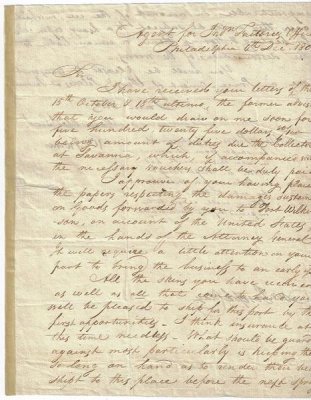 Agent for Ind.n Factories
Philadelphia 6th Dec. 180
Sir
I have received your letters of the
15th October & 15th ultimo, the former advis
that you would draw on me soon for
five hundred twenty five dollars
being amount of duties due the Collector
at Savanna, which, if accompanied with
the necessary vouchers shall be duly paid
I approve of your having plac
the papers respecting the damages sustain
on goods forwarded by you to Fort Wilk
son, on account of the United States
in the hands of the Attorney General
It will require a little attention on your
part to bring the business to an early
All the skins you have received
as well as all that you
will be pleased to ship for this port by the
first opportunities. I think insurance at
this time needless. What should be guard
against most particularly is keeping them
so long on hand as to render their be
shipt to this place before the next spr